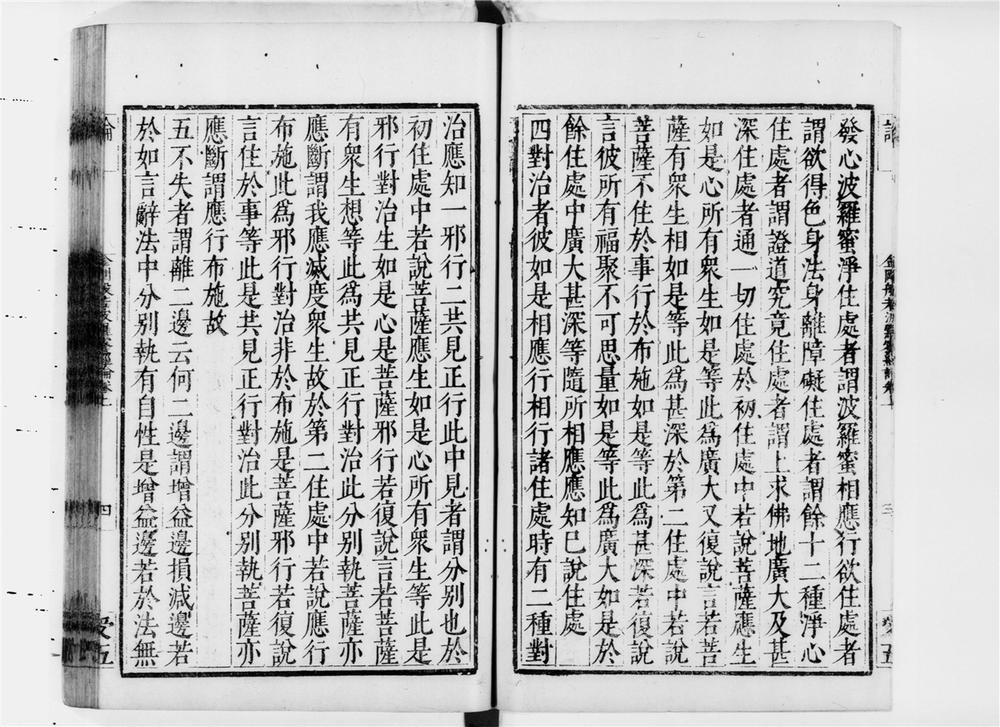 發心波羅蜜淨住處者謂波羅蜜相應行欲住處者
謂欲得色身法身離障礙住處者謂餘十二種淨心
住處者謂證道究竟住處者謂上求佛地廣大及甚
深住處者通一切住處於初住處中若說菩薩應生
如是心所有眾生如是等此為廣大又復說言若菩
薩有眾生相如是等此為甚深於第二住處中若說
菩薩不住於事行於布施如是等此為甚深若復說
言彼所有福聚不可思量如是等此為廣大如是於
餘住處中廣大甚深等隨所相應應知已說住處
四對治者彼如是相應行相行諸住處時有二種對
治應知一邪行二共見正行此中見者謂分別也於
初住處中若說菩薩應生如是心所有眾生等此是
邪行對治生如是心是菩薩邪行若復說言若菩薩
有眾生想等此為共見正行對治此分別執菩薩亦
應斷謂我應滅度眾生故於第二住處中若說應行
布施此為邪行對治非於布施是菩薩邪行若復說
言住於事等此是共見正行對治此分別執菩薩亦
應斷謂應行布施故
五不失者謂離二邊云何二邊謂增益邊損減邊若
於如言辭法中分別執有自性是增益邊若於法無
論
四
受五